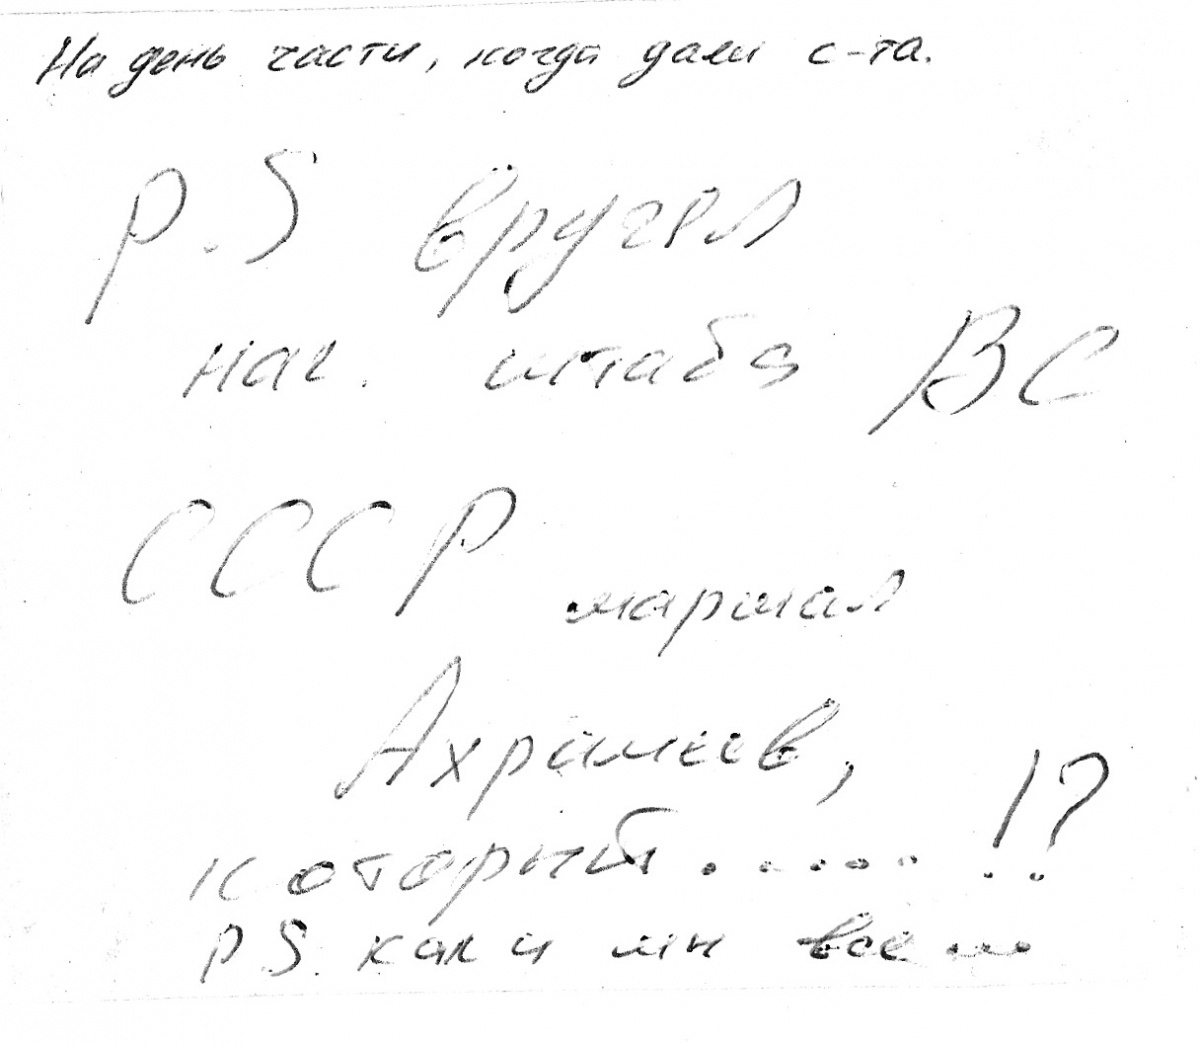 На день части, когда дали с-та.
P.S вручал
нач. штаба ВС
СССР маршал
Ахромеев,
который...... !?
P.S. как и мн все